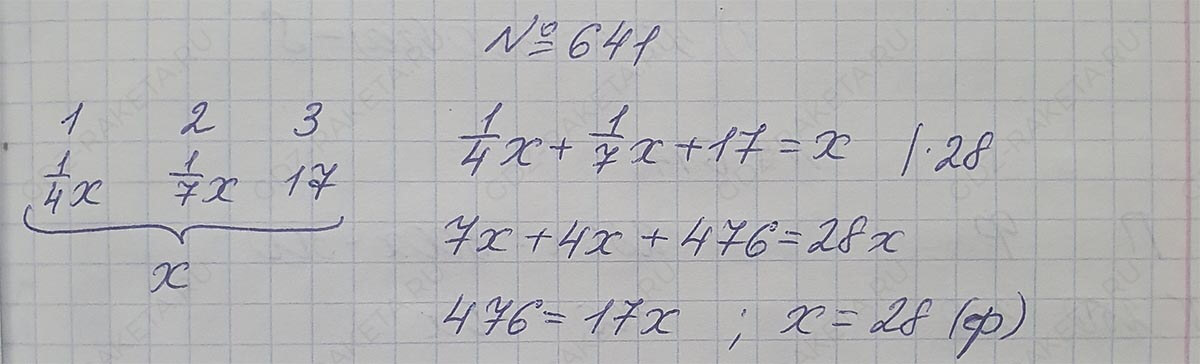 № 641
1 2 3
1/4x 1/7x 17
x
1/4x + 1/7x + 17 = x |·28
7x + 4x + 476 = 28x
476 = 17x ; x = 28 (ф)
GDZ-RAKETA.RU